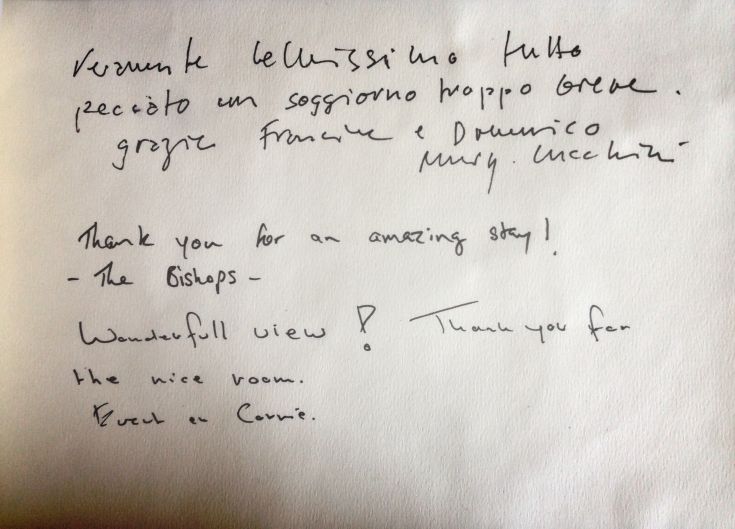 Veramente bellissimo tutto
peccato un soggiorno troppo breve.
grazie Francine e Domenico
Thank you for an amazing stay!
- The Bishops -
Wonderfull view! Thank you for
the nice room.
Evert en Corrie.